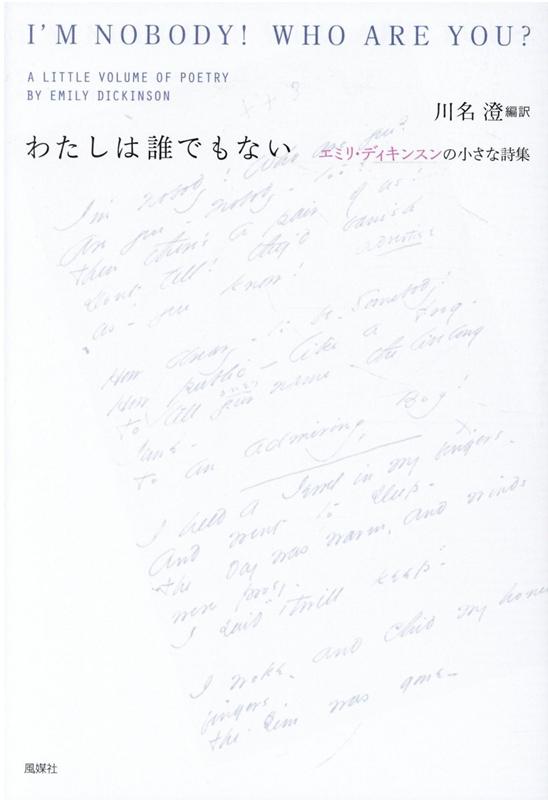 I'M NOBODY! WHO ARE YOU?
A LITTLE VOLUME OF POETRY
BY EMILY DICKINSON
川名 澄 編訳
わたしは誰でもない
エミリ・ディキンスンの小さな詩集
I'm nobody! Who are you?
Are you - nobody - too?
Then there's a pair of us!
Dont tell! they'd banish
as - you know! advertise
How dreary - to be - Somebody!
How public - like a Frog -
To tell your name - the livelong
June -
To an admiring Bog!
I held a Jewel in my fingers -
And went to sleep -
The day was warm, and winds
were prosy -
I said "'Twill keep" -
I woke - and chid my honest
fingers,
The Gem was gone -
風媒社